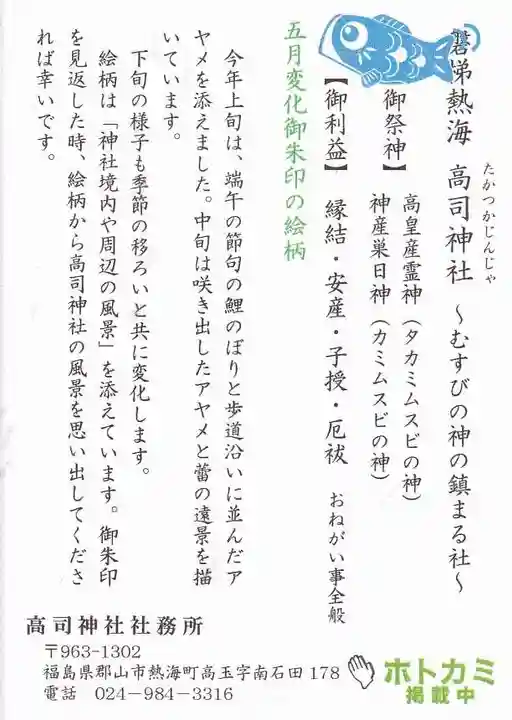 磐梯熱海 高司神社 ～むすびの神の鎮まる社～
たかつかじんじゃ
【御祭神】 高皇産霊神（タカミムスビの神）
神産巣日神（カミムスビの神）
【御利益】 縁結・安産・子授・厄祓 おねがい事全般
五月変化御朱印の絵柄
今年上旬は、端午の節句の鯉のぼりと歩道沿いに並んだア
ヤメを添えました。中旬は咲き出したアヤメと蕾の遠景を描
いています。
下旬の様子も季節の移ろいと共に変化します。
絵柄は「神社境内や周辺の風景」を添えています。御朱印
を見返した時、絵柄から高司神社の風景を思い出してくださ
れば幸いです。
高司神社社務所
〒963-1302
福島県郡山市熱海町高玉字南石田178
電話 024-984-3316
ホトカミ
掲載中